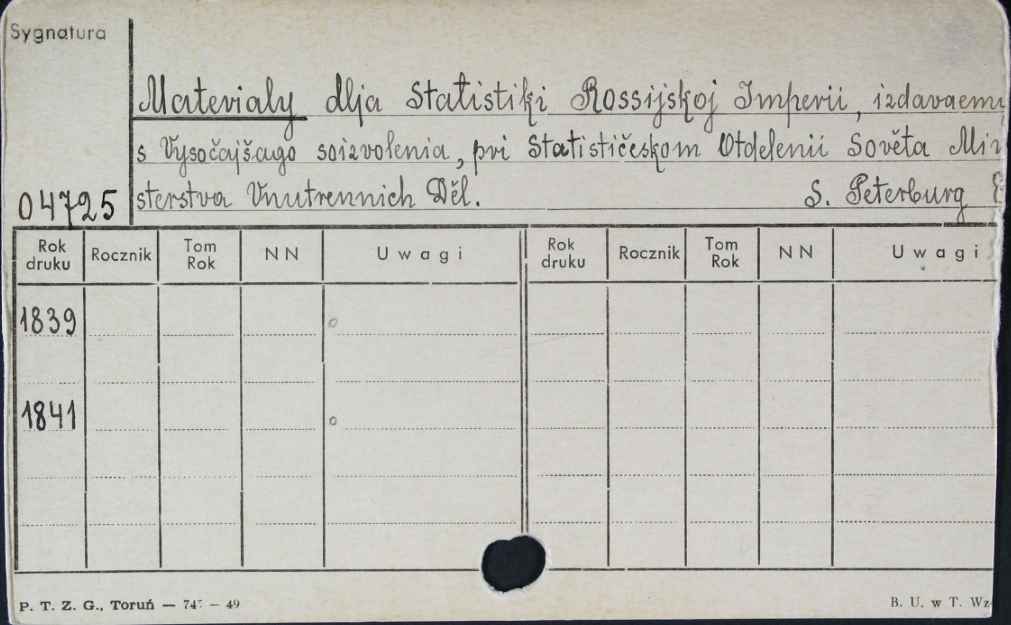 Sygnatura
Materialy dlja Statistiki Rossijskoj Imperii, izdavaemy
s Vysočajšago soizvolenia, pri Statističeskom Otdelenii Sověta Min
04725 sterstva Vnutrennich Děl. S. Peterburg
Rok druku Rocznik Tom Rok NN Uwagi Rok druku Rocznik Tom Rok NN Uwagi
1839
1841
P. T. Z. G., Toruń — 74 — 49 B. U. w T. Wz